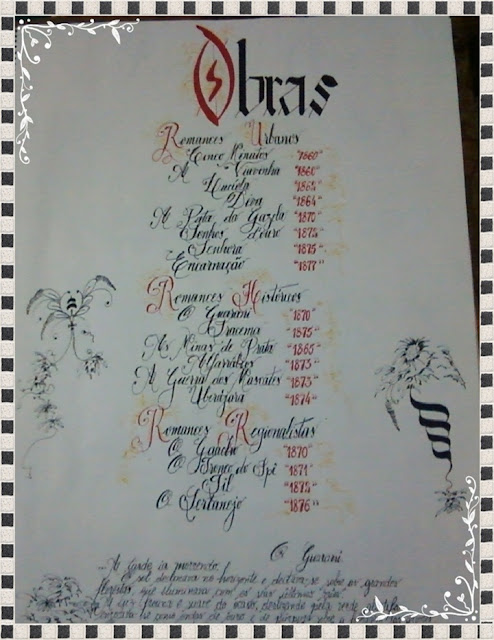 Obras
Romances Urbanos
Cinco Minutos "1860"
A Viuvinha "1860"
Lucíola "1864"
Diva "1864"
A Pata da Gazela "1870"
Sonhos d'ouro "1872"
Senhora "1875"
Encarnação "1877"
Romances Históricos
O Guarani "1870"
Iracema "1875"
As Minas de Prata "1865"
Alfarrábios "1873"
A Guerra dos Mascates "1873"
Ubirajara "1874"
Romances Regionalistas
O Gaúcho "1870"
O Tronco do Ipê "1871"
Til "1875"
O Sertanejo "1876"
O Guarani
...A tarde ia morrendo.
O sol declinava no horizonte e deitava-se sobre as grandes
florestas, que iluminava com os seus últimos raios.